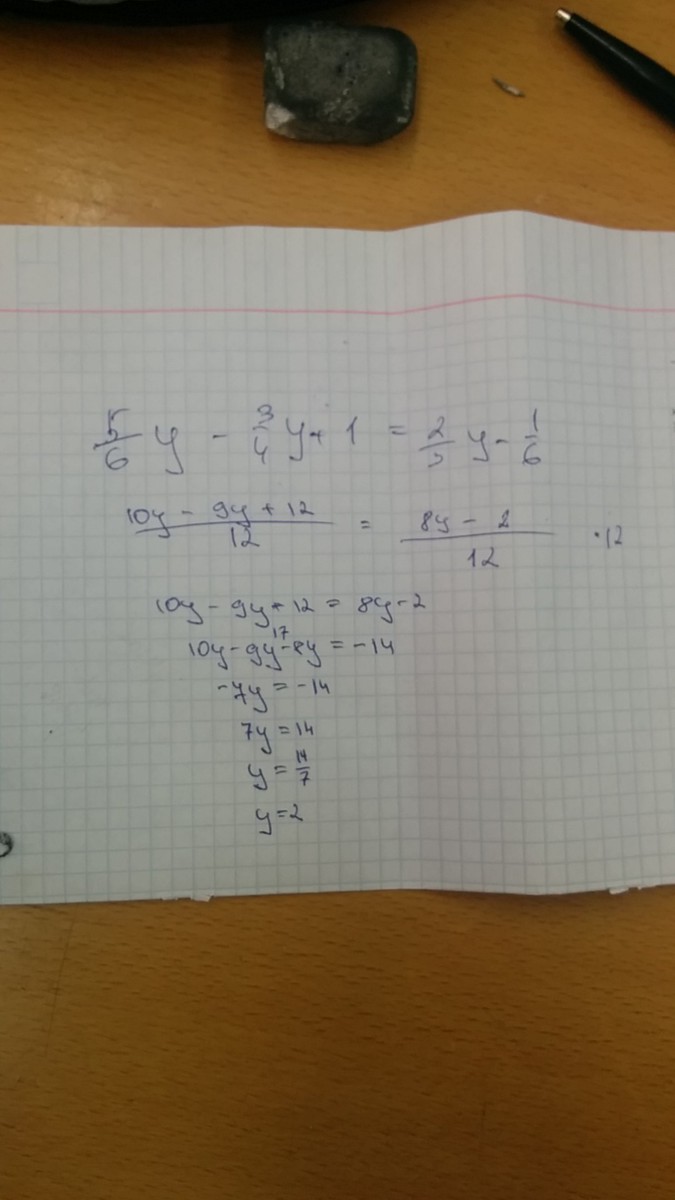 5/6 y - 3/4 y + 1 = 2/3 y - 1/6
10y - 9y + 12 / 12 = 8y - 2 / 12 · 12
10y - 9y + 12 = 8y - 2
17
10y - 9y - 8y = -14
-7y = -14
7y = 14
y = 14/7
y = 2